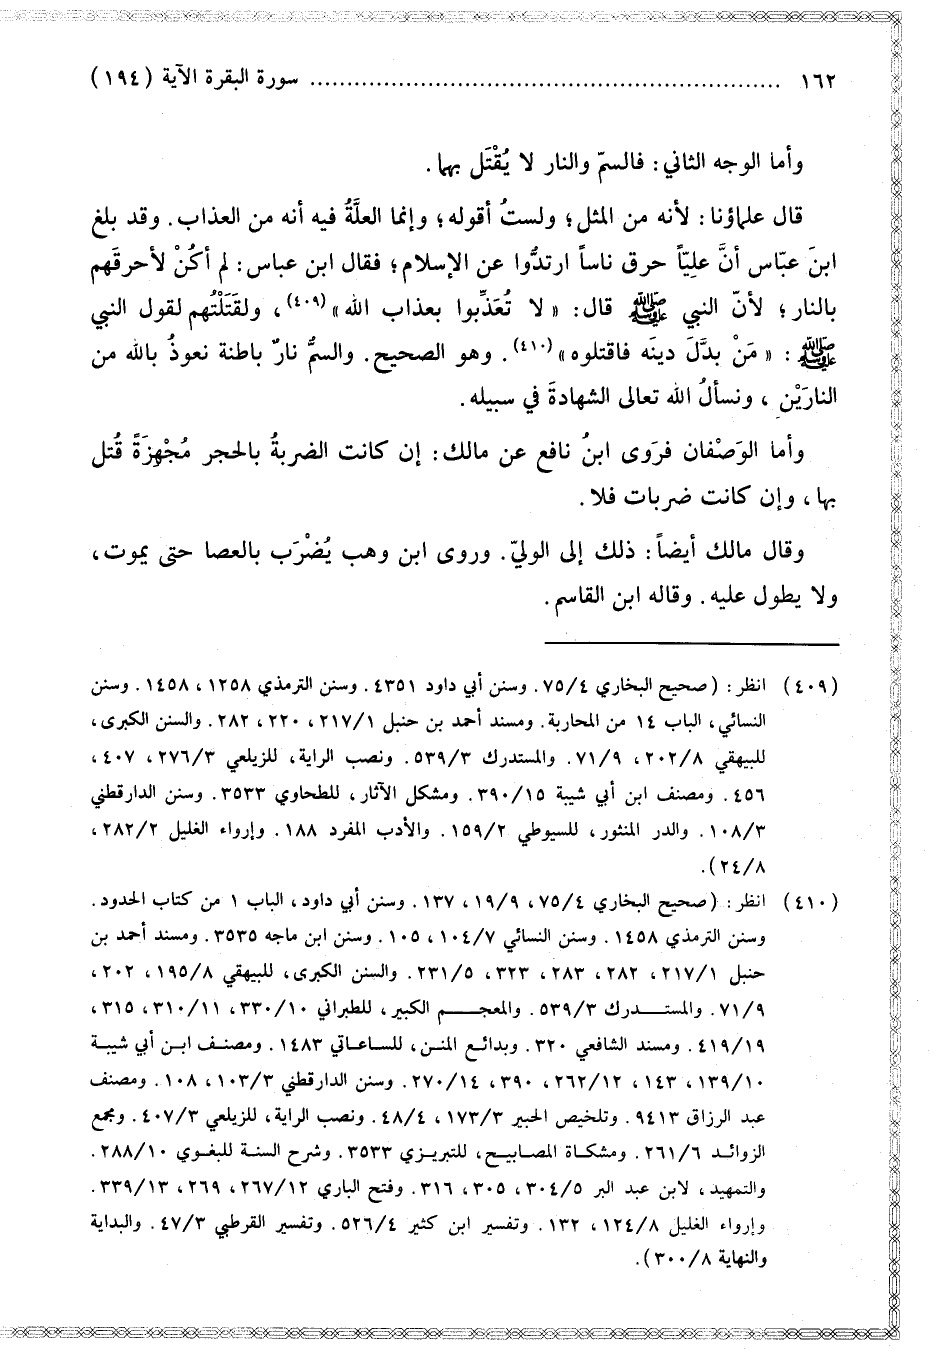 ١٦٢ ................................................................ سورة البقرة الآية (١٩٤)
وأما الوجه الثاني: فالسمّ والنار لا يُقْتَل بها.
قال علماؤنا: لأنه من المثل؛ ولستُ أقوله؛ وإنما العلَّةُ فيه أنه من العذاب. وقد بلغ
ابنَ عبّاس أنَّ عليّاً حرق ناساً ارتدُّوا عن الإسلام؛ فقال ابن عباس: لم أكُنْ لأحرقَهم
بالنار؛ لأنّ النبي ﷺ قال: «لا تُعَذِّبوا بعذاب الله»(٤٠٩)، ولقَتَلْتُهم لقول النبي
ﷺ: «مَنْ بدَّلَ دينَه فاقتلوه»(٤١٠). وهو الصحيح. والسمُّ نارٌ باطنة نعوذُ بالله من
النارَيْن، ونسألُ الله تعالى الشهادةَ في سبيله.
وأما الوَصْفان فرَوَى ابنُ نافع عن مالك: إن كانت الضربةُ بالحجر مُجْهِزَةً قُتل
بها، وإن كانت ضربات فلا.
وقال مالك أيضاً: ذلك إلى الوليّ. وروى ابن وهب يُضْرَب بالعصا حتى يموت،
ولا يطول عليه. وقاله ابن القاسم.
(٤٠٩) انظر: (صحيح البخاري ٧٥/٤. وسنن أبي داود ٤٣٥١. وسنن الترمذي ١٢٥٨، ١٤٥٨. وسنن
النسائي، الباب ١٤ من المحاربة. ومسند أحمد بن حنبل ٢١٧/١، ٢٢٠، ٢٨٢. والسنن الكبرى،
للبيهقي ٢٠٢/٨، ٧١/٩. والمستدرك ٥٣٩/٣. ونصب الراية، للزيلعي ٢٧٦/٣، ٤٠٧،
٤٥٦. ومصنف ابن أبي شيبة ٣٩٠/١٥. ومشكل الآثار، للطحاوي ٣٥٣٣. وسنن الدارقطني
١٠٨/٣. والدر المنثور، للسيوطي ١٥٩/٢. والأدب المفرد ١٨٨. وإرواء الغليل ٢٨٢/٢،
٢٤/٨).
(٤١٠) انظر: (صحيح البخاري ٧٥/٤، ١٩/٩، ١٣٧. وسنن أبي داود، الباب ١ من كتاب الحدود.
وسنن الترمذي ١٤٥٨. وسنن النسائي ١٠٤/٧، ١٠٥. وسنن ابن ماجه ٣٥٣٥. ومسند أحمد بن
حنبل ٢١٧/١، ٢٨٢، ٢٨٣، ٣٢٣، ٢٣١/٥. والسنن الكبرى، للبيهقي ١٩٥/٨، ٢٠٢،
٧١/٩. والمستدرك ٥٣٩/٣. والمعجم الكبير، للطبراني ٣٣٠/١٠، ٣١٠/١١، ٣١٥،
٤١٩/١٩. ومسند الشافعي ٣٢٠. وبدائع المنن، للساعاتي ١٤٨٣. ومصنف ابن أبي شيبة
١٣٩/١٠، ١٤٣، ٢٦٢/١٢، ٣٩٠، ٢٧٠/١٤. وسنن الدارقطني ١٠٣/٣، ١٠٨. ومصنف
عبد الرزاق ٩٤١٣. وتلخيص الحبير ١٧٣/٣، ٤٨/٤. ونصب الراية، للزيلعي ٤٠٧/٣. ومجمع
الزوائد ٢٦١/٦. ومشكاة المصابيح، للتبريزي ٣٥٣٣. وشرح السنة للبغوي ٢٨٨/١٠.
والتمهيد، لابن عبد البر ٣٠٤/٥، ٣٠٥، ٣١٦. وفتح الباري ٢٦٧/١٢، ٢٦٩، ٣٣٩/١٣.
وإرواء الغليل ١٢٤/٨، ١٣٢. وتفسير ابن كثير ٥٢٦/٤. وتفسير القرطبي ٤٧/٣. والبداية
والنهاية ٣٠٠/٨).